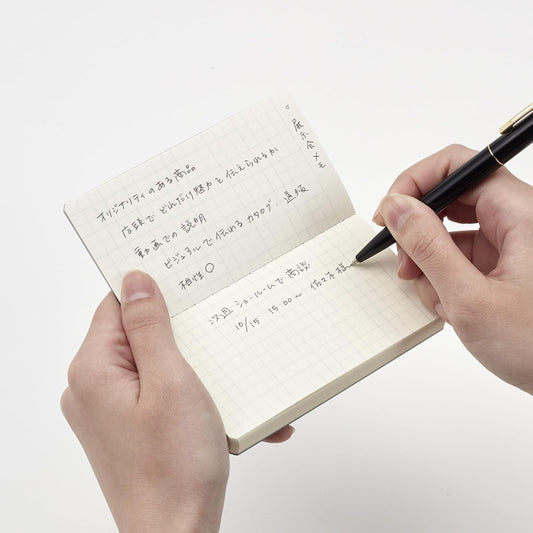 展示会メモ
オリジナリティのある商品
店頭でどれだけ魅力を伝えられるか
動画での説明
ビジュアルで伝わるカタログ 通販
相性○
次週 ショールームで商談
10/15 15:00〜 佐々木様